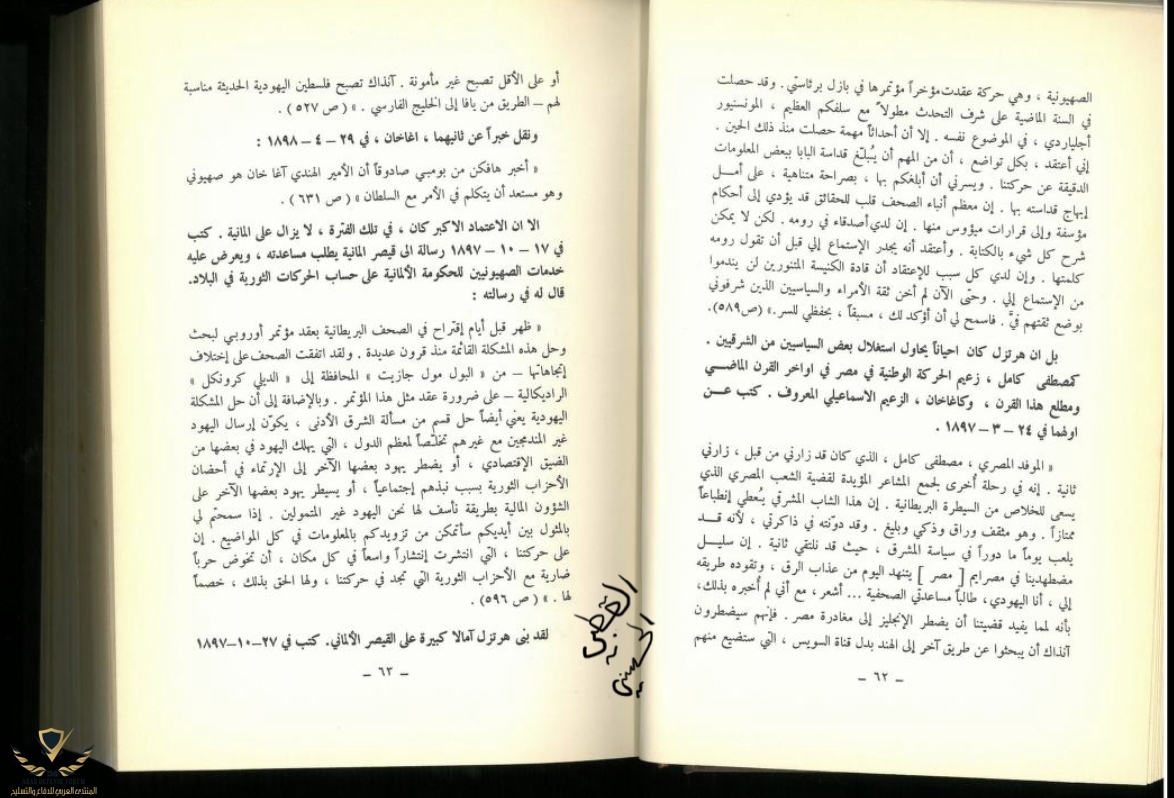 الصهيونية ، وهي حركة عقدت مؤخراً مؤتمرها في بازل برئاستي . وقد حصلت
في السنة الماضية على شرف التحدث مطولاً مع سلفكم العظيم ، المونسنيور
أجلياردي ، في الموضوع نفسه . إلا أن أحداثاً مهمة حصلت منذ ذلك الحين .
إني أعتقد ، بكل تواضع ، أن من المهم أن يُبلّغ قداسة البابا ببعض المعلومات
الدقيقة عن حركتنا . ويسرني أن أبلغكم بها ، بصراحة متناهية ، على أمــل
إبهاج قداسته بها . إن معظم أنباء الصحف قلب للحقائق قد يؤدي إلى أحكام
مؤسفة وإلى قرارات ميؤوس منها . إن لدي أصدقاء في رومه . لكن لا يمكن
شرح كل شيء بالكتابة . وأعتقد أنه يجدر الإستماع إلي قبل أن تقول رومه
كلمتها . وإن لدي كل سبب للإعتقاد أن قادة الكنيسة المتنورين لن يندموا
من الإستماع إلي . وحتى الآن لم أخن ثقة الأمراء والسياسيين الذين شرفوني
بوضع ثقتهم فيَّ . فاسمح لي أن أؤكد لك ، مسبقاً ، بحفظي للسر . » (ص ٥٨٩).
بل ان هرتزل كان احياناً يحاول استغلال بعض السياسيين من الشرقيين .
كمصطفى كامل ، زعيم الحركة الوطنية في مصر في اواخر القرن الماضــي
ومطلع هذا القرن ، وكاغاخان ، الزعيم الاسماعيلي المعروف . كتب عــن
اولهما في ٢٤ – ٣ – ١٨٩٧ .
« الموفد المصري ، مصطفى كامل ، الذي كان قد زارني من قبل ، زارني
ثانية . إنه في رحلة أخرى لجمع المشاعر المؤيدة لقضية الشعب المصري الذي
يسعى للخلاص من السيطرة البريطانية . إن هذا الشاب المشرقي يُعطي إنطباعاً
ممتازاً . وهو مثقف وراق وذكي وبليغ . وقد دوّنته في ذاكرتي ، لأنه قــد
يلعب يوماً ما دوراً في سياسة المشرق ، حيث قد نلتقي ثانية . إن سليــل
مضطهدينا في مصرايم [ مصر ] يتنهد اليوم من عذاب الرق ، وتقوده طريقه
إلي ، أنا اليهودي ، طالباً مساعدتي الصحفية ... أشعر ، مع أني لم أُخبره بذلك،
بأنه لمما يفيد قضيتنا أن يضطر الإنجليز إلى مغادرة مصر . فإنهم سيضطرون
آنذاك أن يبحثوا عن طريق آخر إلى الهند بدل قناة السويس ، التي ستضيع منهم
– ٦٢ –
أو على الأقل تصبح غير مأمونة . آنذاك تصبح فلسطين اليهودية الحديثة مناسبة
لهم – الطريق من يافا إلى الخليج الفارسي . » ( ص ٥٢٧ ) .
ونقل خبراً عن ثانيهما ، اغاخان ، في ٢٩ – ٤ – ١٨٩٨ :
« أخبر هافكن من بومبي صادوقاً أن الأمير الهندي آغا خان هو صهيوني
وهو مستعد أن يتكلم في الأمر مع السلطان » ( ص ٦٣١ ) .
الا ان الاعتماد الاكبر كان ، في تلك الفترة ، لا يزال على المانية . كتب
في ١٧ – ١٠ – ١٨٩٧ رسالة الى قيصر المانية يطلب مساعدته ، ويعرض عليه
خدمات الصهيونيين للحكومة الألمانية على حساب الحركات الثورية في البلاد.
قال له في رسالته :
« ظهر قبل أيام إقتراح في الصحف البريطانية بعقد مؤتمر أوروبي لبحث
وحل هذه المشكلة القائمة منذ قرون عديدة . ولقد اتفقت الصحف على إختلاف
إتجاهاتها – من « البول مول جازيت » المحافظة إلى « الديلي كرونكل »
الراديكالية – على ضرورة عقد مثل هذا المؤتمر . وبالإضافة إلى أن حل المشكلة
اليهودية يعني أيضاً حل قسم من مسألة الشرق الأدنى ، يكوّن إرسال اليهود
غير المندمجين مع غيرهم تخلّصاً لمعظم الدول ، التي يهلك اليهود في بعضها من
الضيق الإقتصادي ، أو يضطر يهود بعضها الآخر إلى الإرتماء في أحضان
الأحزاب الثورية بسبب نبذهم إجتماعياً ، أو يسيطر يهود بعضها الآخر على
الشؤون المالية بطريقة نأسف لها نحن اليهود غير المتمولين . إذا سمحتم لي
بالمثول بين أيديكم سأتمكن من تزويدكم بالمعلومات في كل المواضيع . إن
على حركتنا ، التي انتشرت إنتشاراً واسعاً في كل مكان ، أن تخوض حرباً
ضارية مع الأحزاب الثورية التي تجد في حركتنا ، ولها الحق بذلك ، خصماً
لها . » ( ص ٥٩٦ ) .
لقد بنى هرتزل آمالا كبيرة على القيصر الألماني . كتب في ٢٧–١٠–١٨٩٧
– ٦٣ –
المنتدى العربي للدفاع والتسليح